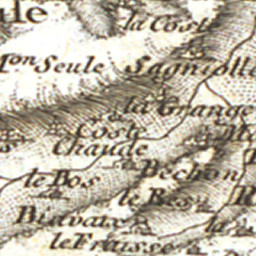 ule
la Coste
Mon Seule
Sagniolle
la Grange
Coste
Chaude
Bechon
le Bos
le Bes
Biavaix
la
le Fraisse